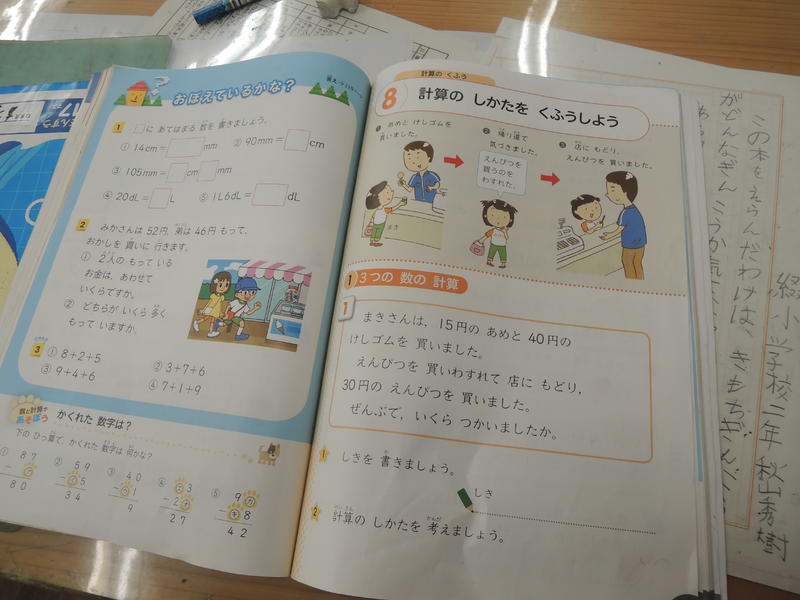 おぼえているかな?
1 □に あてはまる 数を 書きましょう。
① 14cm=□mm ② 90mm=□cm
③ 105mm=□cm□mm
④ 20dL=□L ⑤ 1L6dL=□dL
2 みかさんは 52円, 弟は 46円 もって,
おかしを 買いに 行きます。
① 2人の もって いる
お金は, あわせて
いくらですか。
② どちらが いくら 多く
もって いますか。
3 ① 8+2+5 ② 3+7+6
③ 9+4+6 ④ 7+1+9
数と計算で
あそぼう
かくれた 数字は?
下の ひっ算で, かくれた 数字は 何かな?
① ② ③ ④ ⑤
87
80
59
5
34
40
1
9
3
2
27
9
8
42
計算の くふう
8 計算の しかたを くふうしよう
① あめと けしゴムを
買いました。
② 帰り道で
気づきました。
えんぴつを
買うのを
わすれた。
③ 店に もどり,
えんぴつを 買いました。
まき
1 3つの 数の 計算
1
まきさんは, 15円の あめと 40円の
けしゴムを 買いました。
えんぴつを 買いわすれて 店に もどり,
30円の えんぴつを 買いました。
ぜんぶで, いくら つかいましたか。
1 しきを 書きましょう。
しき
2 計算の しかたを 考えましょう。
17
小学校二年 秋山秀樹
この本をえらんだわけは、きもちが
がどんなぎん